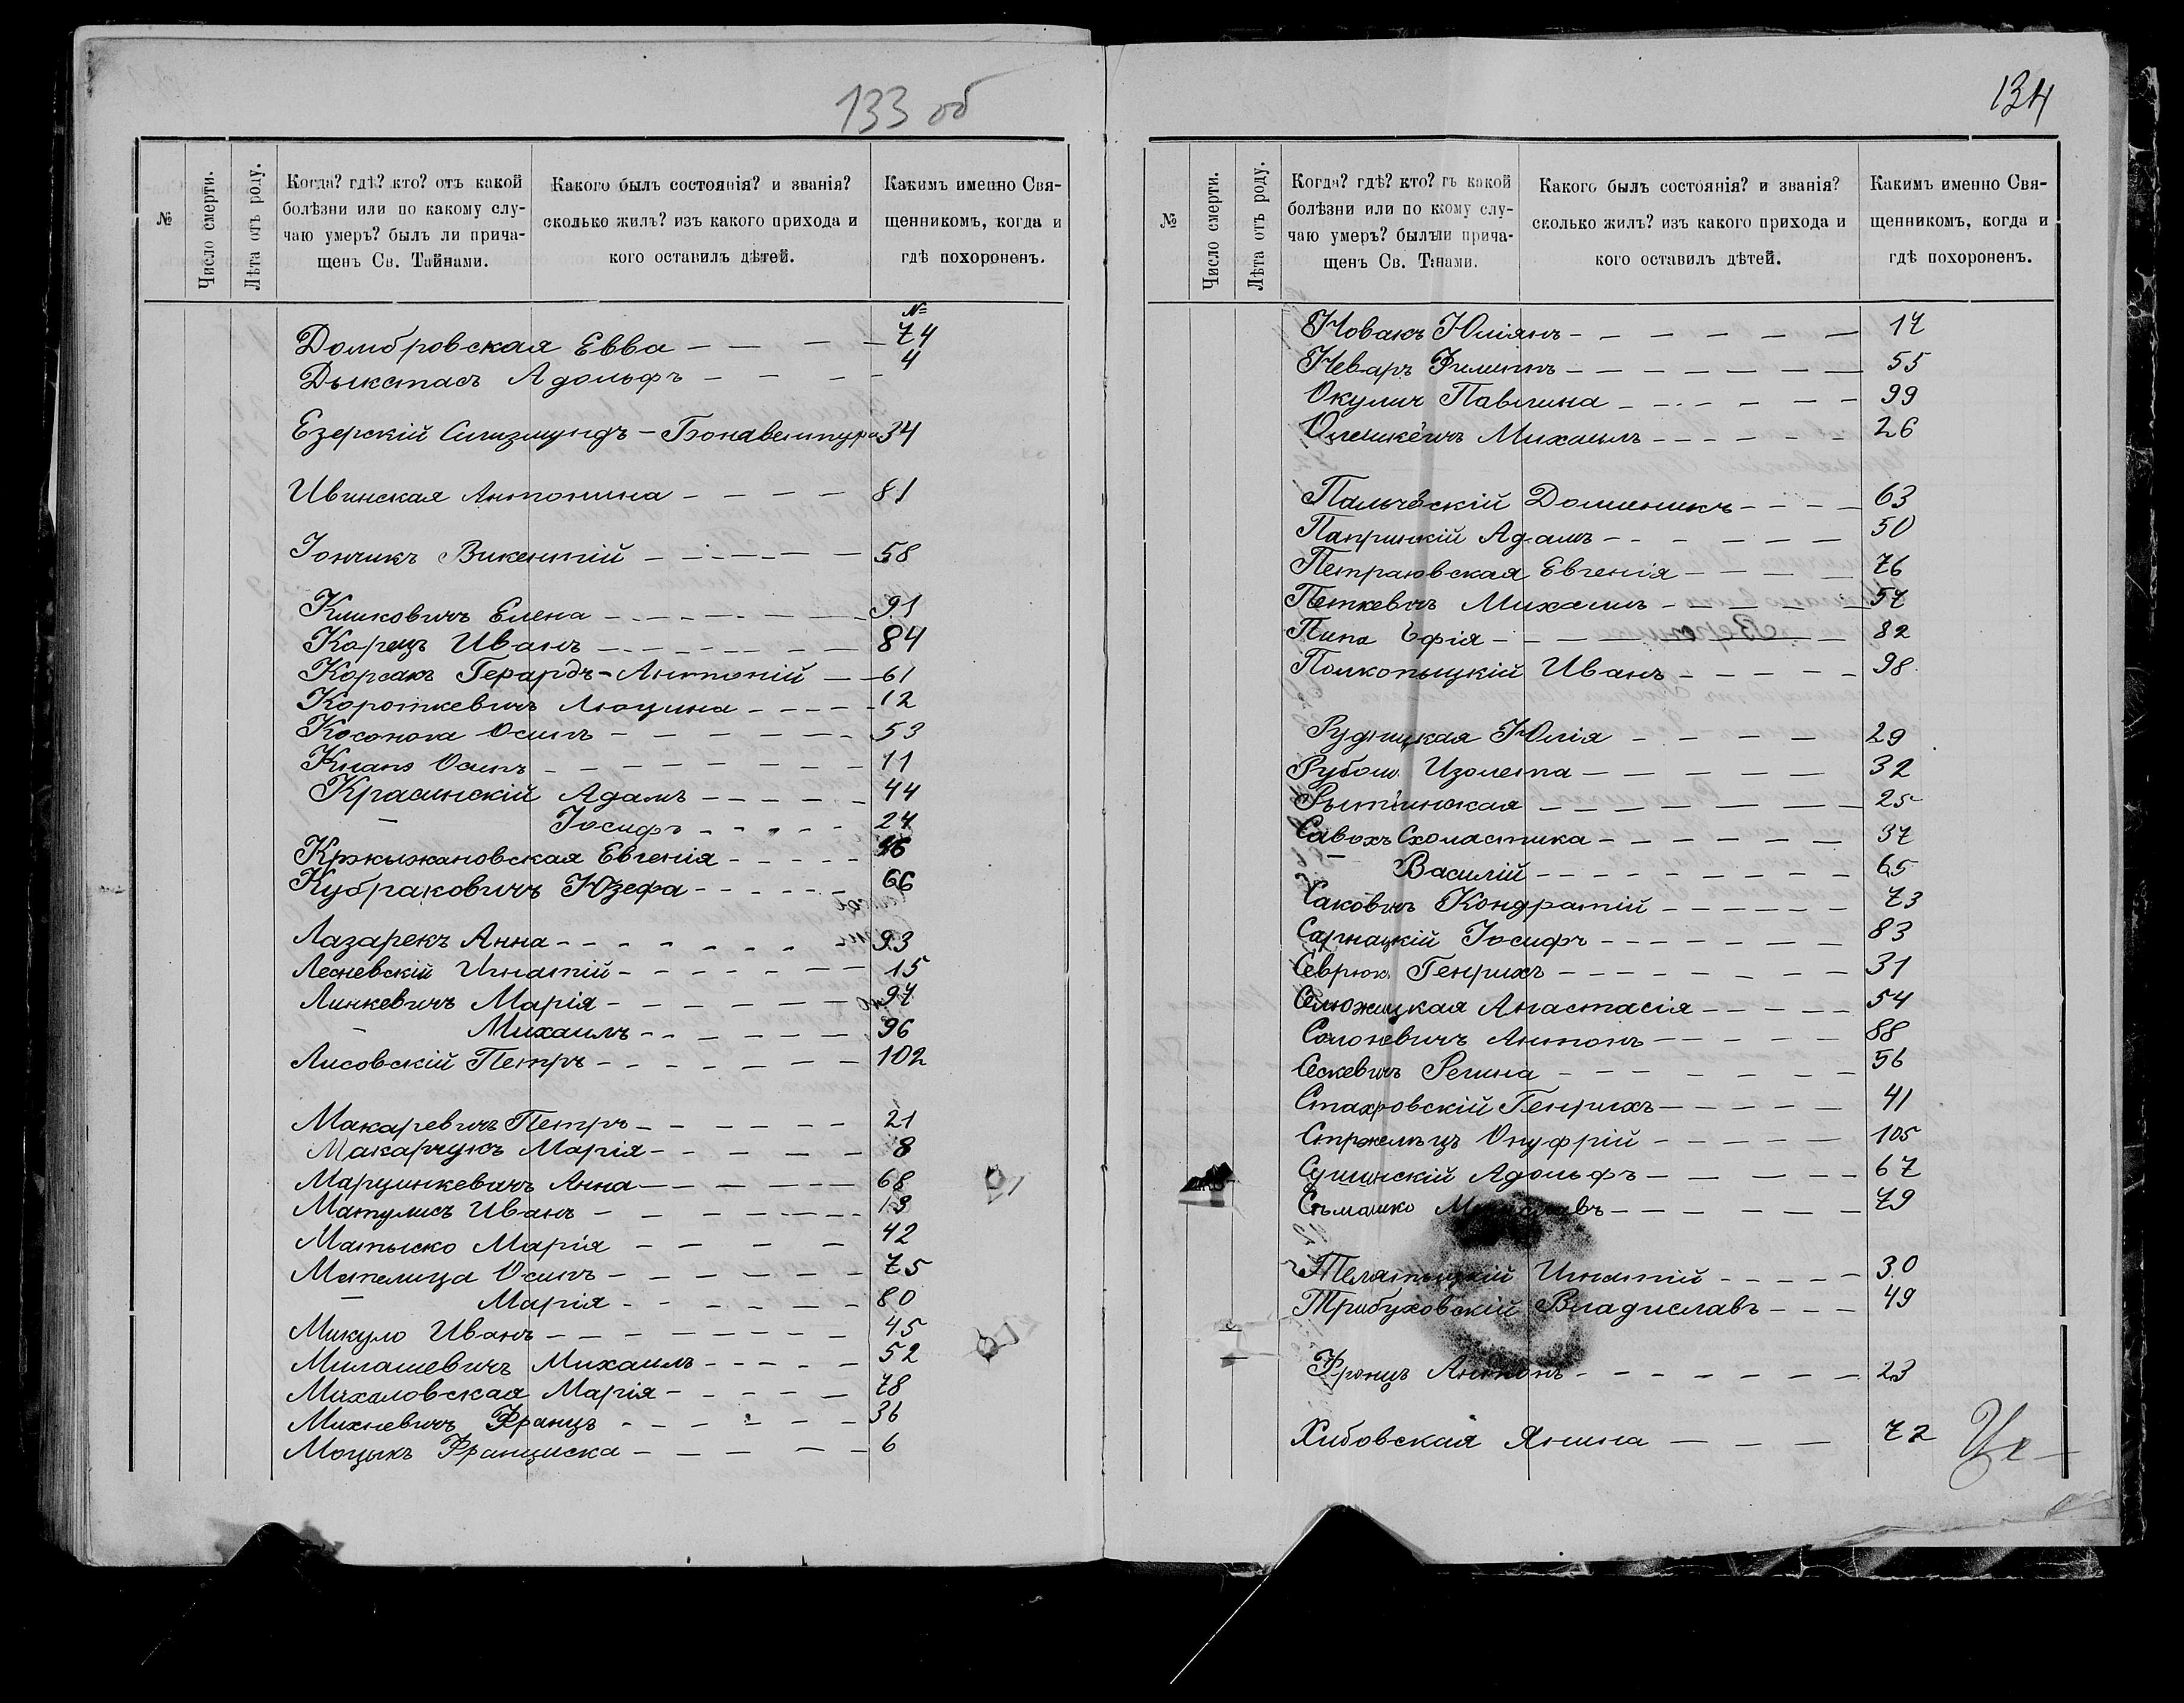 133 об
№
Число смерти.
Лѣта отъ роду.
Когда? гдѣ? кто? отъ какой
болѣзни или по какому слу-
чаю умеръ? былъ ли прича-
щенъ Св. Тайнами.
Какого былъ состоянія? и званія?
сколько жилъ? изъ какого прихода и
кого оставилъ дѣтей.
Какимъ именно Свя-
щенникомъ, когда и
гдѣ похороненъ.
№
Домбровская Евва — — — — 74
Дыкстасъ Адольфъ — — — — 4
Езерскій Сигизмундъ - Бонавентура 34
Ивинская Антонина — — — — 81
Іончикъ Викентій — — — — — 58
Климковичъ Елена — — — — — 91
Корецъ Иванъ — — — — — 84
Корсакъ Герардъ-Антоній — — 61
Короткевичъ Люцина — — — — 12
Косонога Осипъ — — — — — 53
Осипъ — — — — — — 11
Красинскій Адамъ — — — — — 44
— Іосифъ — — — — — 24
Кржыжановская Евгенія — — — — —
Кубраковичъ Юзефа — — — — — 66
Лазарекъ Анна — — — — — — — 93
Лесневскій Игнатій — — — — — — 15
Линкевичъ Марія — — — — — — 97
— Михаилъ — — — — — — 96
Лисовскій Петръ — — — — — — — 102
Макаревичъ Петръ — — — — — — 21
Макарчукъ Марія — — — — — 8
Марцинкевичъ Анна — — — — — — 68
Матулисъ Иванъ — — — — — — 13
Матыско Марія — — — — 42
Мителица Осипъ — — — — — — 75
— Марія — — — — — — 80
Микуло Иванъ — — — — — — — — 45
Милашевичъ Михаилъ — — — — — 52
Михаловская Марія — — — — — 78
Михневичъ Францъ — — — — — — 36
Моцыкъ Франциска — — — — — 6
134
№
Число смерти.
Лѣта отъ роду.
Когда? гдѣ? кто? тъ какой
болѣзни или по ккому слу-
чаю умеръ? былъли прича-
щенъ Св. Танами.
Какого былъ состоянія? и званія?
сколько жилъ? изъ какого прихода и
кого оставилъ дѣтей.
Какимъ именно Свя-
щенникомъ, когда и
гдѣ похороненъ.
Новакъ Юліянъ — — — — — — 17
Неваръ Филиппъ — — — — — — — 55
Окулич Павлина — — — — — — 99
Михаилъ — — — — — — 26
Пальчевскій Доминикъ — — — — 63
Адамъ — — — — — — 50
Евгенія — — — — 76
Петкевичъ Михаилъ — — — — — 57
— — — — — — 82
Иванъ — — — — — 98
Рудницкая Юлія — — — — 29
Изолета — — — — — 32
— — — — — — — 25
Савохъ Схоластика — — — — — — 37
— Василій — — — — — — — — 65
Саковичъ Кондратій — — — — — — 73
Сарнацкій Іосифъ — — — — — — — 83
Севрюк Генрихъ — — — — — — — 31
Анастасія — — — — — 54
Антонъ — — — — — 88
Регина — — — — — — — 56
Стахровскій Генрихъ — — — — — 41
Стржелецъ Онуфрій — — — — — 105
Адольфъ — — — — — — 67
Сѣмашко — — — — — — 79
Телятыцкій Игнатій — — — — — 30
Трибуховскій Владиславъ — — — 49
Францъ Антонъ — — — — — — — 23
Хибовская Янина — — — — 72